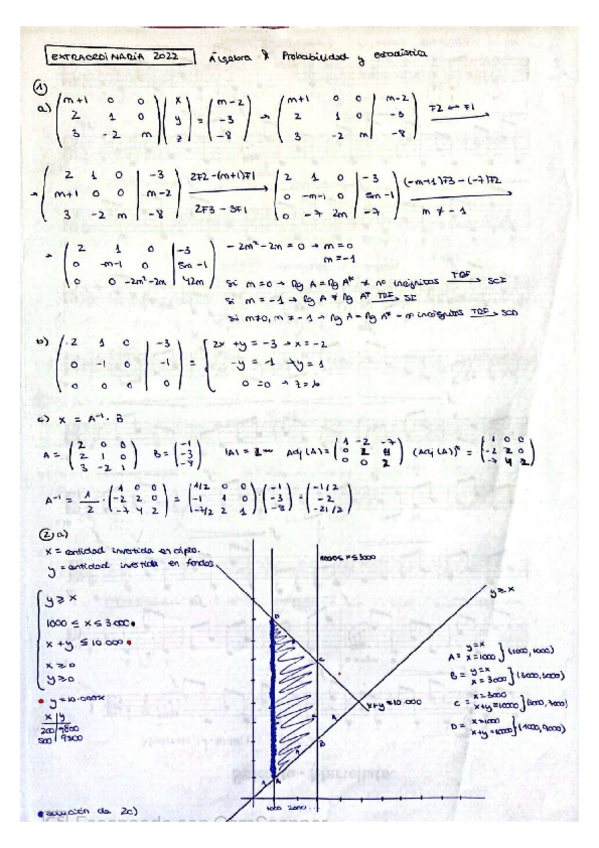 EXTRAORDINARIA 2022 Álgebra y Probabilidad y estadística
①
a) (m+1 0 0 / 2 1 0 / 3 -2 m) (x / y / z) = (m-2 / -3 / -8) → (m+1 0 0 | m-2 / 2 1 0 | -3 / 3 -2 m | -8) F2 ↔ F1
→ (2 1 0 | -3 / m+1 0 0 | m-2 / 3 -2 m | -8) 2F2-(m+1)F1 2F3 - 3F1 → (2 1 0 | -3 / 0 -m-1 0 | 5m-1 / 0 -7 2m | -7) (-m-1)F3-(-7)F2 m ≠ -1
→ (2 1 0 | -3 / 0 -m-1 0 | 5m-1 / 0 0 -2m²-2m | 42m) -2m²-2m = 0 → m=0
m=-1
Si m=0 → Rg A = Rg A* ≠ nº incógnitas TRF→ SCI
Si m=-1 → Rg A ≠ Rg A* TRF→ SI
Si m≠0, m≠-1 → Rg A = Rg A* = nº incógnitas TRF→ SCD
b) (2 1 0 | -3 / 0 -1 0 | -1 / 0 0 0 | 0) = { 2x + y = -3 → x = -2
-y = -1 → y = 1
0 = 0 → z = λ
c) x = A⁻¹ · B
A = (2 0 0 / 2 1 0 / 3 -2 1) B = (-1 / -3 / -8) |A| = 2 Adj(A) = (1 -2 -7 / 0 2 4 / 0 0 2) (Adj(A))ᵗ = (1 0 0 / -2 2 0 / -7 4 2)
A⁻¹ = 1/2 · (1 0 0 / -2 2 0 / -7 4 2) = (1/2 0 0 / -1 1 0 / -7/2 2 1) · (-1 / -3 / -8) = (-1/2 / -2 / -21/2)
② a)
x = cantidad invertida en cripto.
y = cantidad invertida en fondos
y ≥ x
1000 ≤ x ≤ 3000
x + y ≤ 10.000
x ≥ 0
y ≥ 0
y = 10.000-x
x | y
200 | 9800
500 | 9500
1000 ≤ x ≤ 3000
y ≥ x
x+y = 10.000
D
C
B
A
1000 2000
A = y=x x=1000 } (1000, 1000)
B = y=x x=3000 } (3000, 3000)
C = x=3000 x+y=10000 } (3000, 7000)
D = x=1000 x+y=10000 } (1000, 9000)
solución de 2c)